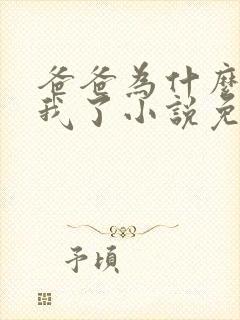 爸爸為什麼
我了小說免
予頃